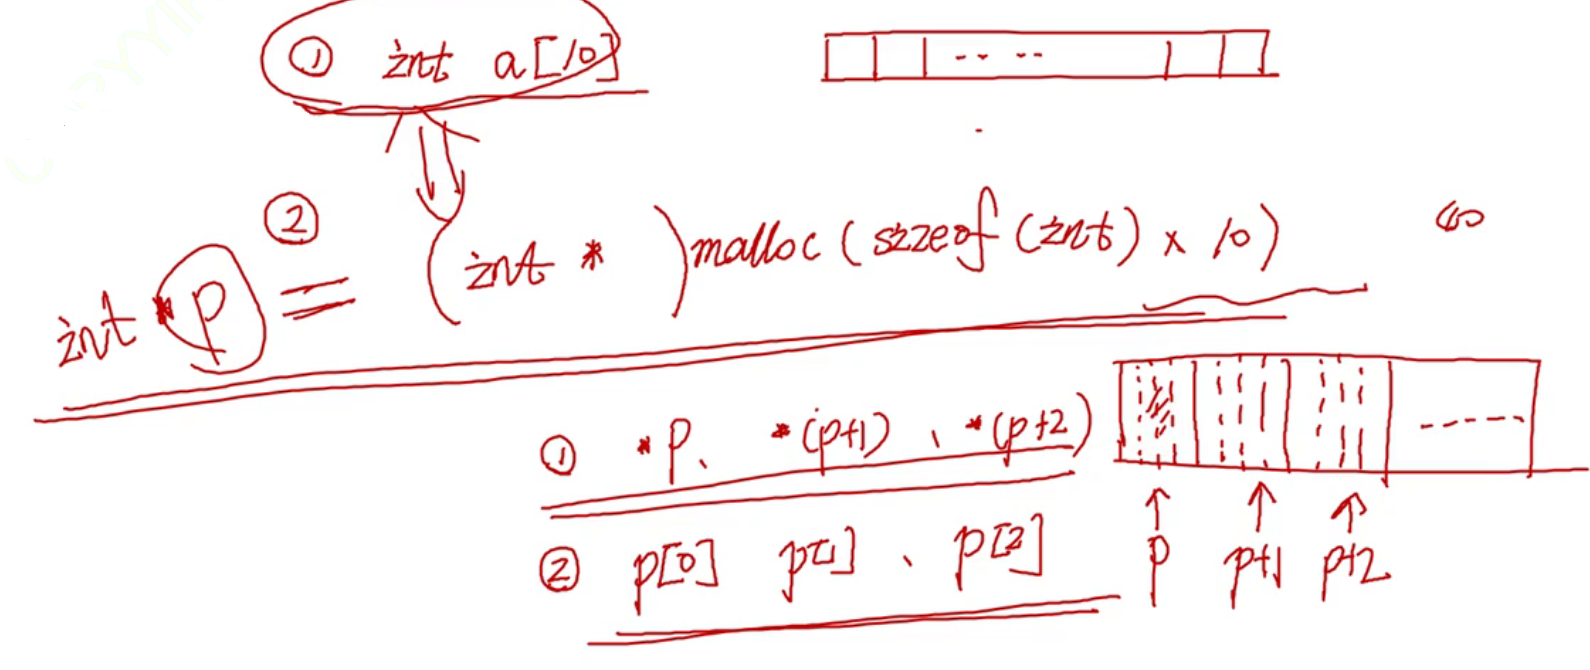 ① int a[10]
②
int *p = (int *) malloc (sizeof (int) × 10) 40
① *p、 *(p+1) 、 *(p+2)
② p[0] p[1] 、 p[2]
p p+1 p+2